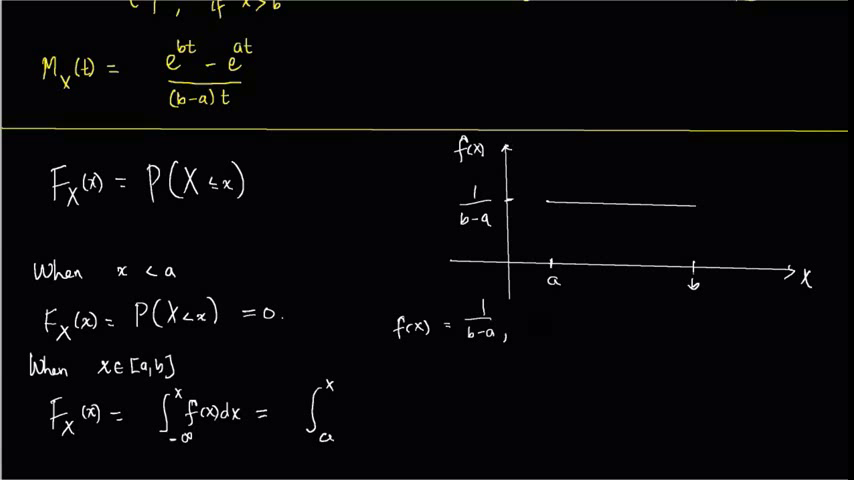 1, if x > b
M_X(t) = (e^{bt} - e^{at}) / ((b-a)t)
F_X(x) = P(X ≤ x)
When x < a
F_X(x) = P(X < x) = 0.
When x ∈ [a,b]
F_X(x) = ∫_{-∞}^{x} f(x)dx = ∫_{a}^{x}
f(x)
1/(b-a)
a b X
f(x) = 1/(b-a),